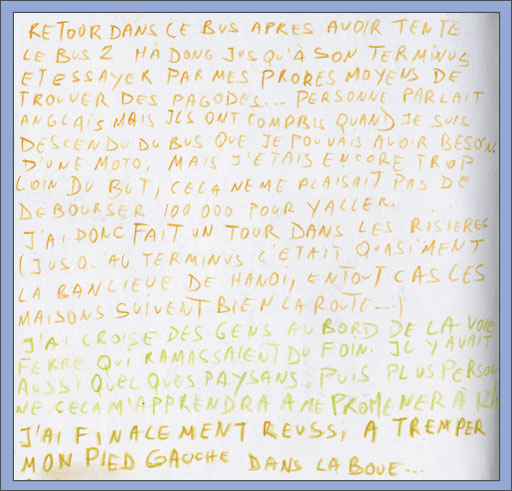 RETOUR DANS CE BUS APRES AVOIR TENTE
LE BUS 2 HA DONG JUSQU'À SON TERMINUS
ET ESSAYER PAR MES PROPRES MOYENS DE
TROUVER DES PAGODES... PERSONNE PARLAIT
ANGLAIS MAIS ILS ONT COMPRIS QUAND JE SUIS
DESCENDU DU BUS QUE JE POUVAIS AVOIR BESOIN
D'UNE MOTO, MAIS J'ETAIS ENCORE TROP
LOIN DU BUT, CELA NE ME PLAISAIT PAS DE
DEBOURSER 100 000 POUR Y ALLER.
J'AI DONC FAIT UN TOUR DANS LES RISIERES
(JUSQU'AU TERMINUS C'ETAIT QUASIMENT
LA BANLIEUE DE HANOI, EN TOUT CAS LES
MAISONS SUIVENT BIEN LA ROUTE...)
J'AI CROISE DES GENS AU BORD DE LA VOIE
FERRE QUI RAMASSAIENT DU FOIN. IL Y AVAIT
AUSSI QUELQUES PAYSANS, PUIS PLUS PERSON
NE. CELA M'APPRENDRA A ME PROMENER À 12H
J'AI FINALEMENT REUSSI A TREMPER
MON PIED GAUCHE DANS LA BOUE...